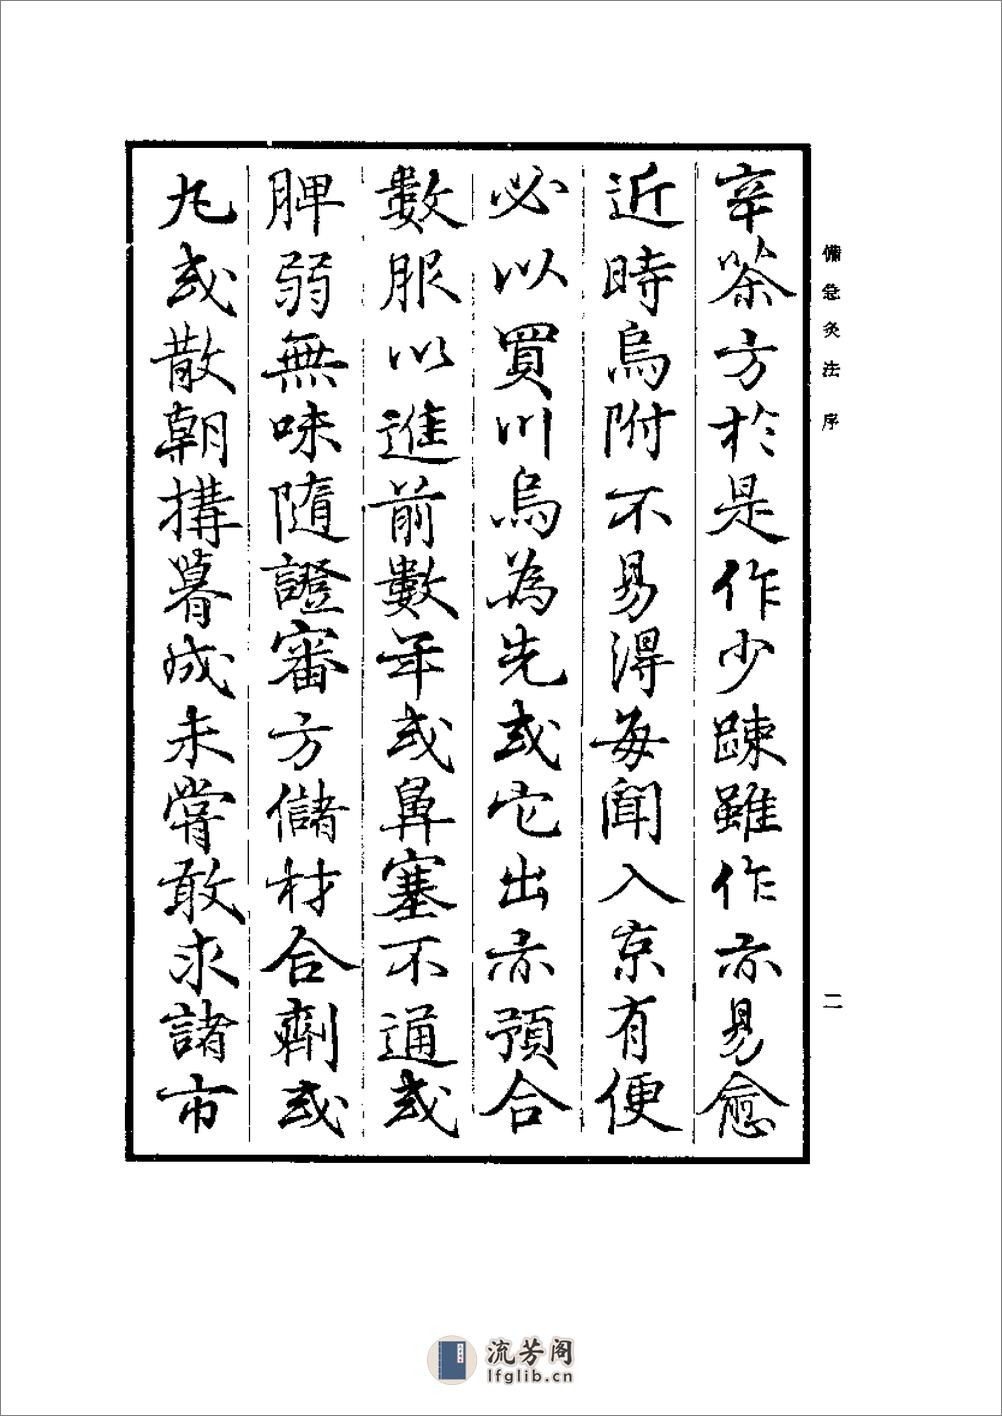 備急灸法 序
二
辛荼方於是作少踈雖作亦易愈
近時烏附不易得每聞入京有便
必以買川烏為先或它出亦預合
數服以進前數年或鼻塞不通或
脾弱無味隨證審方儲材合劑或
丸或散朝搆暮成未嘗敢求諸市
流芳阁
lfglib.cn